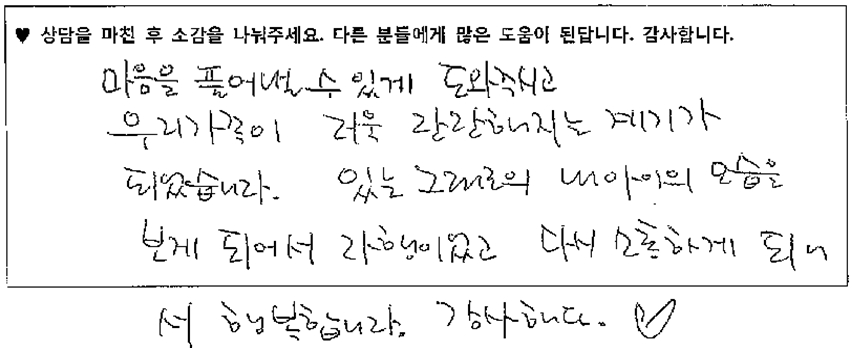 ♥ 상담을 마친 후 소감을 나눠주세요. 다른 분들에게 많은 도움이 된답니다. 감사합니다.
마음을 풀어낼 수 있게 도와주시고
우리가족이 더욱 단단해지는 계기가
되었습니다. 있는 그대로의 내아이의 모습을
보게 되어서 다행이었고 다시 소통하게 되어
서 행복합니다. 감사합니다. ♡